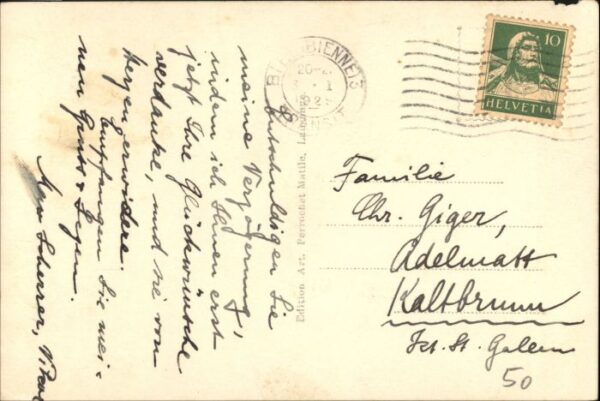 Entschuldigen Sie
meine Verzögerung,
indem ich Ihnen erst
jetzt Ihre Glückwünsche
verdanke, und sie von
Herzen erwidere.
Empfangen Sie mei-
nen Gruss & Segen.
Scherrer, Vikar
Edition Art. Perrochet Matile, Lausanne
BIENNE
TRANSIT
10
HELVETIA
Familie
Chr. Giger,
Adelmatt
Kaltbrunn
Kt. St. Gallen
50